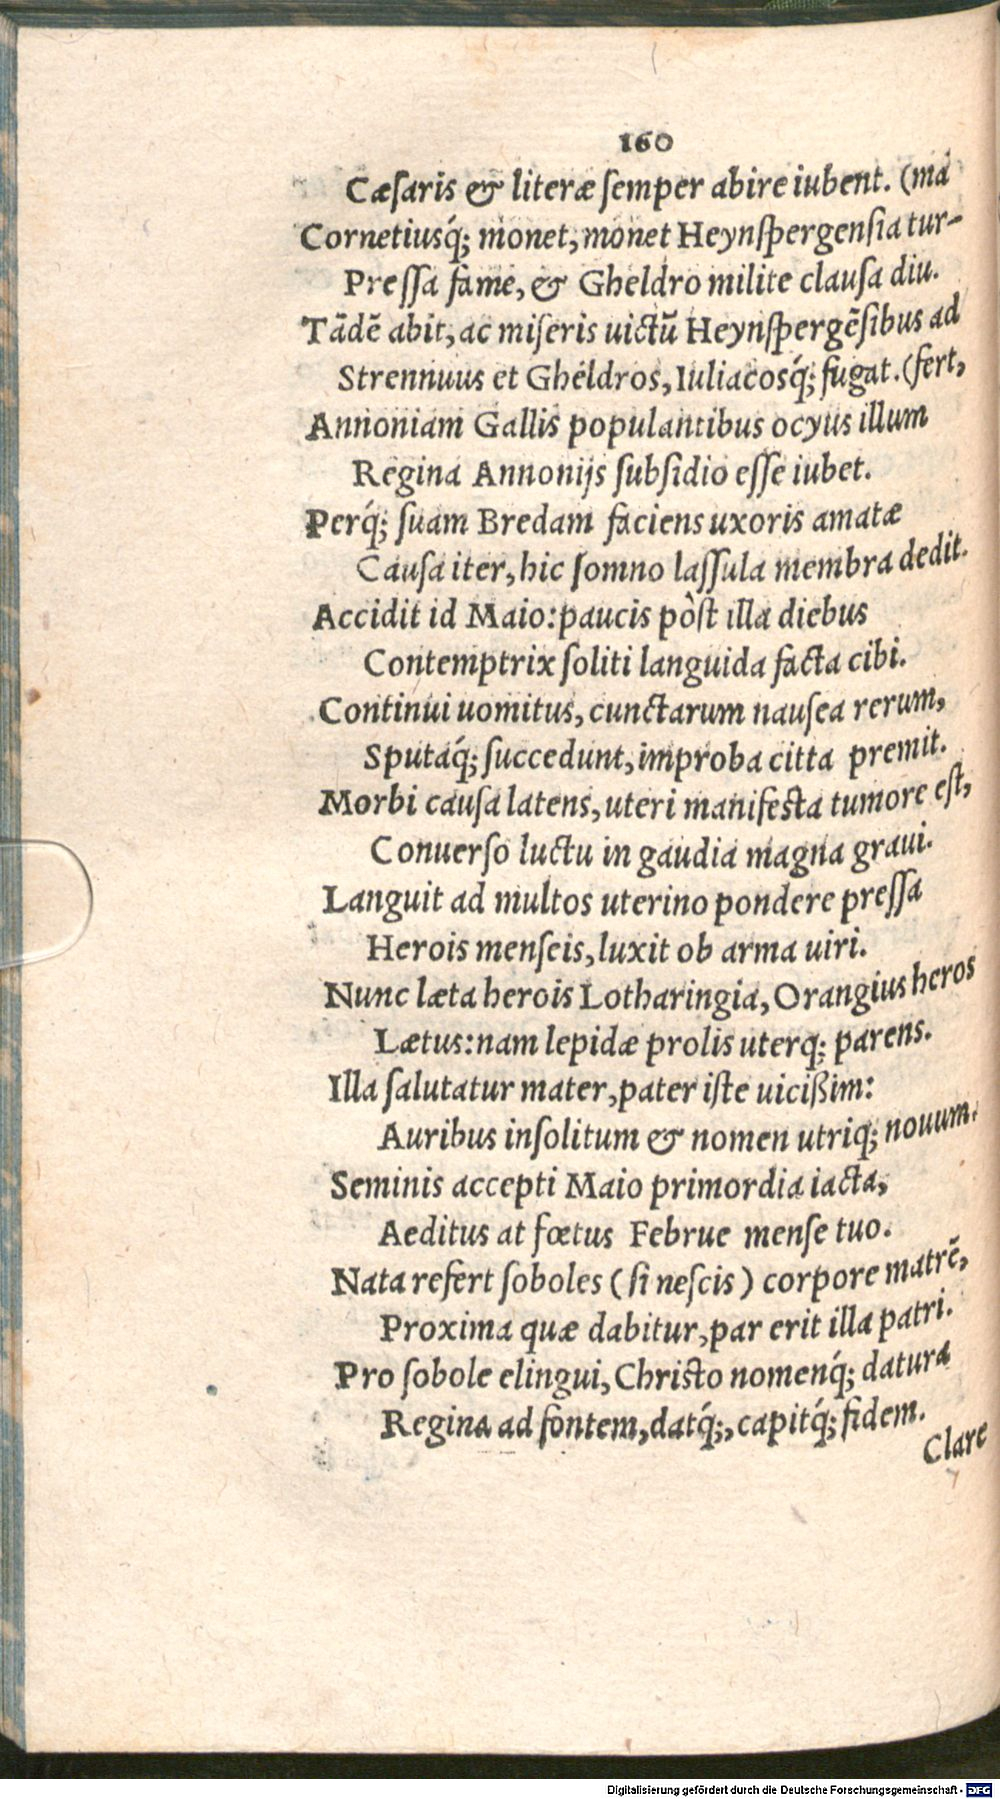 160
Cæſaris & literæ ſemper abire iubent. (ma
Cornetiusq́; monet, monet Heynſpergenſia tur-
Preſſa fame, & Gheldro milite clauſa diu.
Tādē abit, ac miſeris uictū Heynſpergēſibus ad
Strennuus et Gheldros, Iuliacosq́; fugat. (fert,
Annoniam Gallis populantibus ocyus illum
Regina Annonijs ſubſidio eſſe iubet.
Perq́; ſuam Bredam faciens uxoris amatæ
Cauſa iter, hic ſomno laſſula membra dedit.
Accidit id Maio: paucis pòſt illa diebus
Contemptrix ſoliti languida facta cibi.
Continui uomitus, cunctarum nauſea rerum,
Sputaq́; ſuccedunt, improba citta premit.
Morbi cauſa latens, uteri manifeſta tumore eſt,
Conuerſo luctu in gaudia magna graui.
Languit ad multos uterino pondere preſſa
Herois menſeis, luxit ob arma uiri.
Nunc læta herois Lotharingia, Orangius heros
Lætus: nam lepidæ prolis uterq; parens.
Illa ſalutatur mater, pater iſte uicißim:
Auribus inſolitum & nomen utriq; nouum.
Seminis accepti Maio primordia iacta,
Aeditus at fœtus Februe menſe tuo.
Nata refert ſoboles (ſi neſcis) corpore matrē,
Proxima quæ dabitur, par erit illa patri.
Pro ſobole elingui, Chriſto nomenq́; datura
Regina ad fontem, datq́;, capitq́; fidem.
Clare
Digitalisierung gefördert durch die Deutsche Forschungsgemeinschaft - DFG